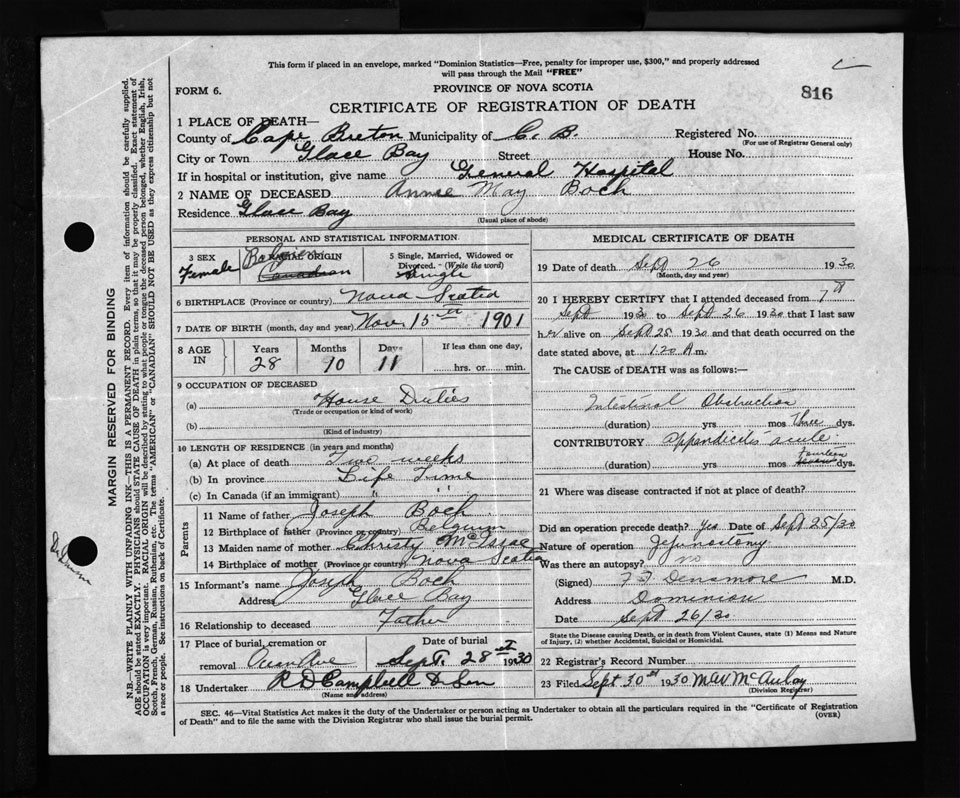 This form if placed in an envelope, marked "Dominion Statistics—Free, penalty for improper use, $300," and properly addressed
will pass through the Mail "FREE"
FORM 6.
PROVINCE OF NOVA SCOTIA
816
CERTIFICATE OF REGISTRATION OF DEATH
1 PLACE OF DEATH—
County of Cape Breton Municipality of C. B. Registered No.
(For use of Registrar General only)
City or Town Glace Bay Street House No.
If in hospital or institution, give name General Hospital
2 NAME OF DECEASED Annie May Boch
Residence Glace Bay
(Usual place of abode)
PERSONAL AND STATISTICAL INFORMATION
3 SEX
Female
RACIAL ORIGIN
Canadian
5 Single, Married, Widowed or
Divorced.—(Write the word)
Single
6 BIRTHPLACE (Province or country) Nova Scotia
7 DATE OF BIRTH (month, day and year) Nov 15th 1901
8 AGE IN
Years Months Days
28 10 11
If less than one day,
hrs. or min.
9 OCCUPATION OF DECEASED
(a) House Duties
(Trade or occupation or kind of work)
(b)
(Kind of industry)
10 LENGTH OF RESIDENCE (in years and months)
(a) At place of death Two weeks
(b) In province Life Time
(c) In Canada (if an immigrant) " "
Parents
11 Name of father Joseph Boch
12 Birthplace of father (Province or country) Belgium
13 Maiden name of mother Christy McIsaac
14 Birthplace of mother (Province or country) Nova Scotia
15 Informant's name Joseph Boch
Address Glace Bay
16 Relationship to deceased Father
17 Place of burial, cremation or
removal Ocean Ave
Date of burial
Sept. 28th 1930
18 Undertaker R D Campbell & Son
(Name and address)
MEDICAL CERTIFICATE OF DEATH
19 Date of death Sept 26 1930
(Month, day and year)
20 I HEREBY CERTIFY that I attended deceased from 7th
Sept 1930 to Sept 26 1930 that I last saw
her alive on Sept 25 1930 and that death occurred on the
date stated above, at 1.20 A m.
The CAUSE of DEATH was as follows:—
Intestinal Obstruction
(duration) yrs mos Three dys.
CONTRIBUTORY appendicitis acute
(duration) yrs mos fourteen dys.
21 Where was disease contracted if not at place of death?
Did an operation precede death? yes Date of Sept 25/30
Nature of operation Jejunostomy
Was there an autopsy?
(Signed) Densmore M.D.
Address Dominion
Date Sept 26/30
State the Disease causing Death, or in death from Violent Causes, state (1) Means and Nature
of Injury, (2) whether Accidental, Suicidal or Homicidal.
22 Registrar's Record Number
23 Filed Sept 30th 1930 M W McAulay
(Division Registrar)
SEC. 46—Vital Statistics Act makes it the duty of the Undertaker or person acting as Undertaker to obtain all the particulars required in the "Certificate of Registration
of Death" and to file the same with the Division Registrar who shall issue the burial permit.
(OVER)
MARGIN RESERVED FOR BINDING
N.B.—WRITE PLAINLY WITH UNFADING INK—THIS IS A PERMANENT RECORD. Every item of information should be carefully supplied.
AGE should be stated EXACTLY. PHYSICIANS should STATE CAUSE OF DEATH in plain terms, so that it may be properly classified. Exact statement of
OCCUPATION is very important. RACIAL ORIGIN will be described by stating to what people or tongue the deceased person belonged, whether English, Irish,
Scotch, French, German, Russian, Ruthenian, etc. The terms "AMERICAN" or "CANADIAN" SHOULD NOT BE USED as they express citizenship but not
a race or people. See instructions on back of Certificate.